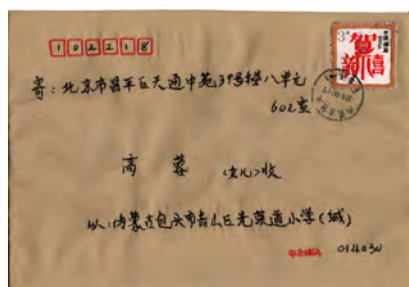 102218
寄：北京市昌平区天通中苑39号楼八单元
602室
高 蓉 (女儿)收
以：内蒙古包头市青山区光荣道小学(缄)
邮政编码 014030